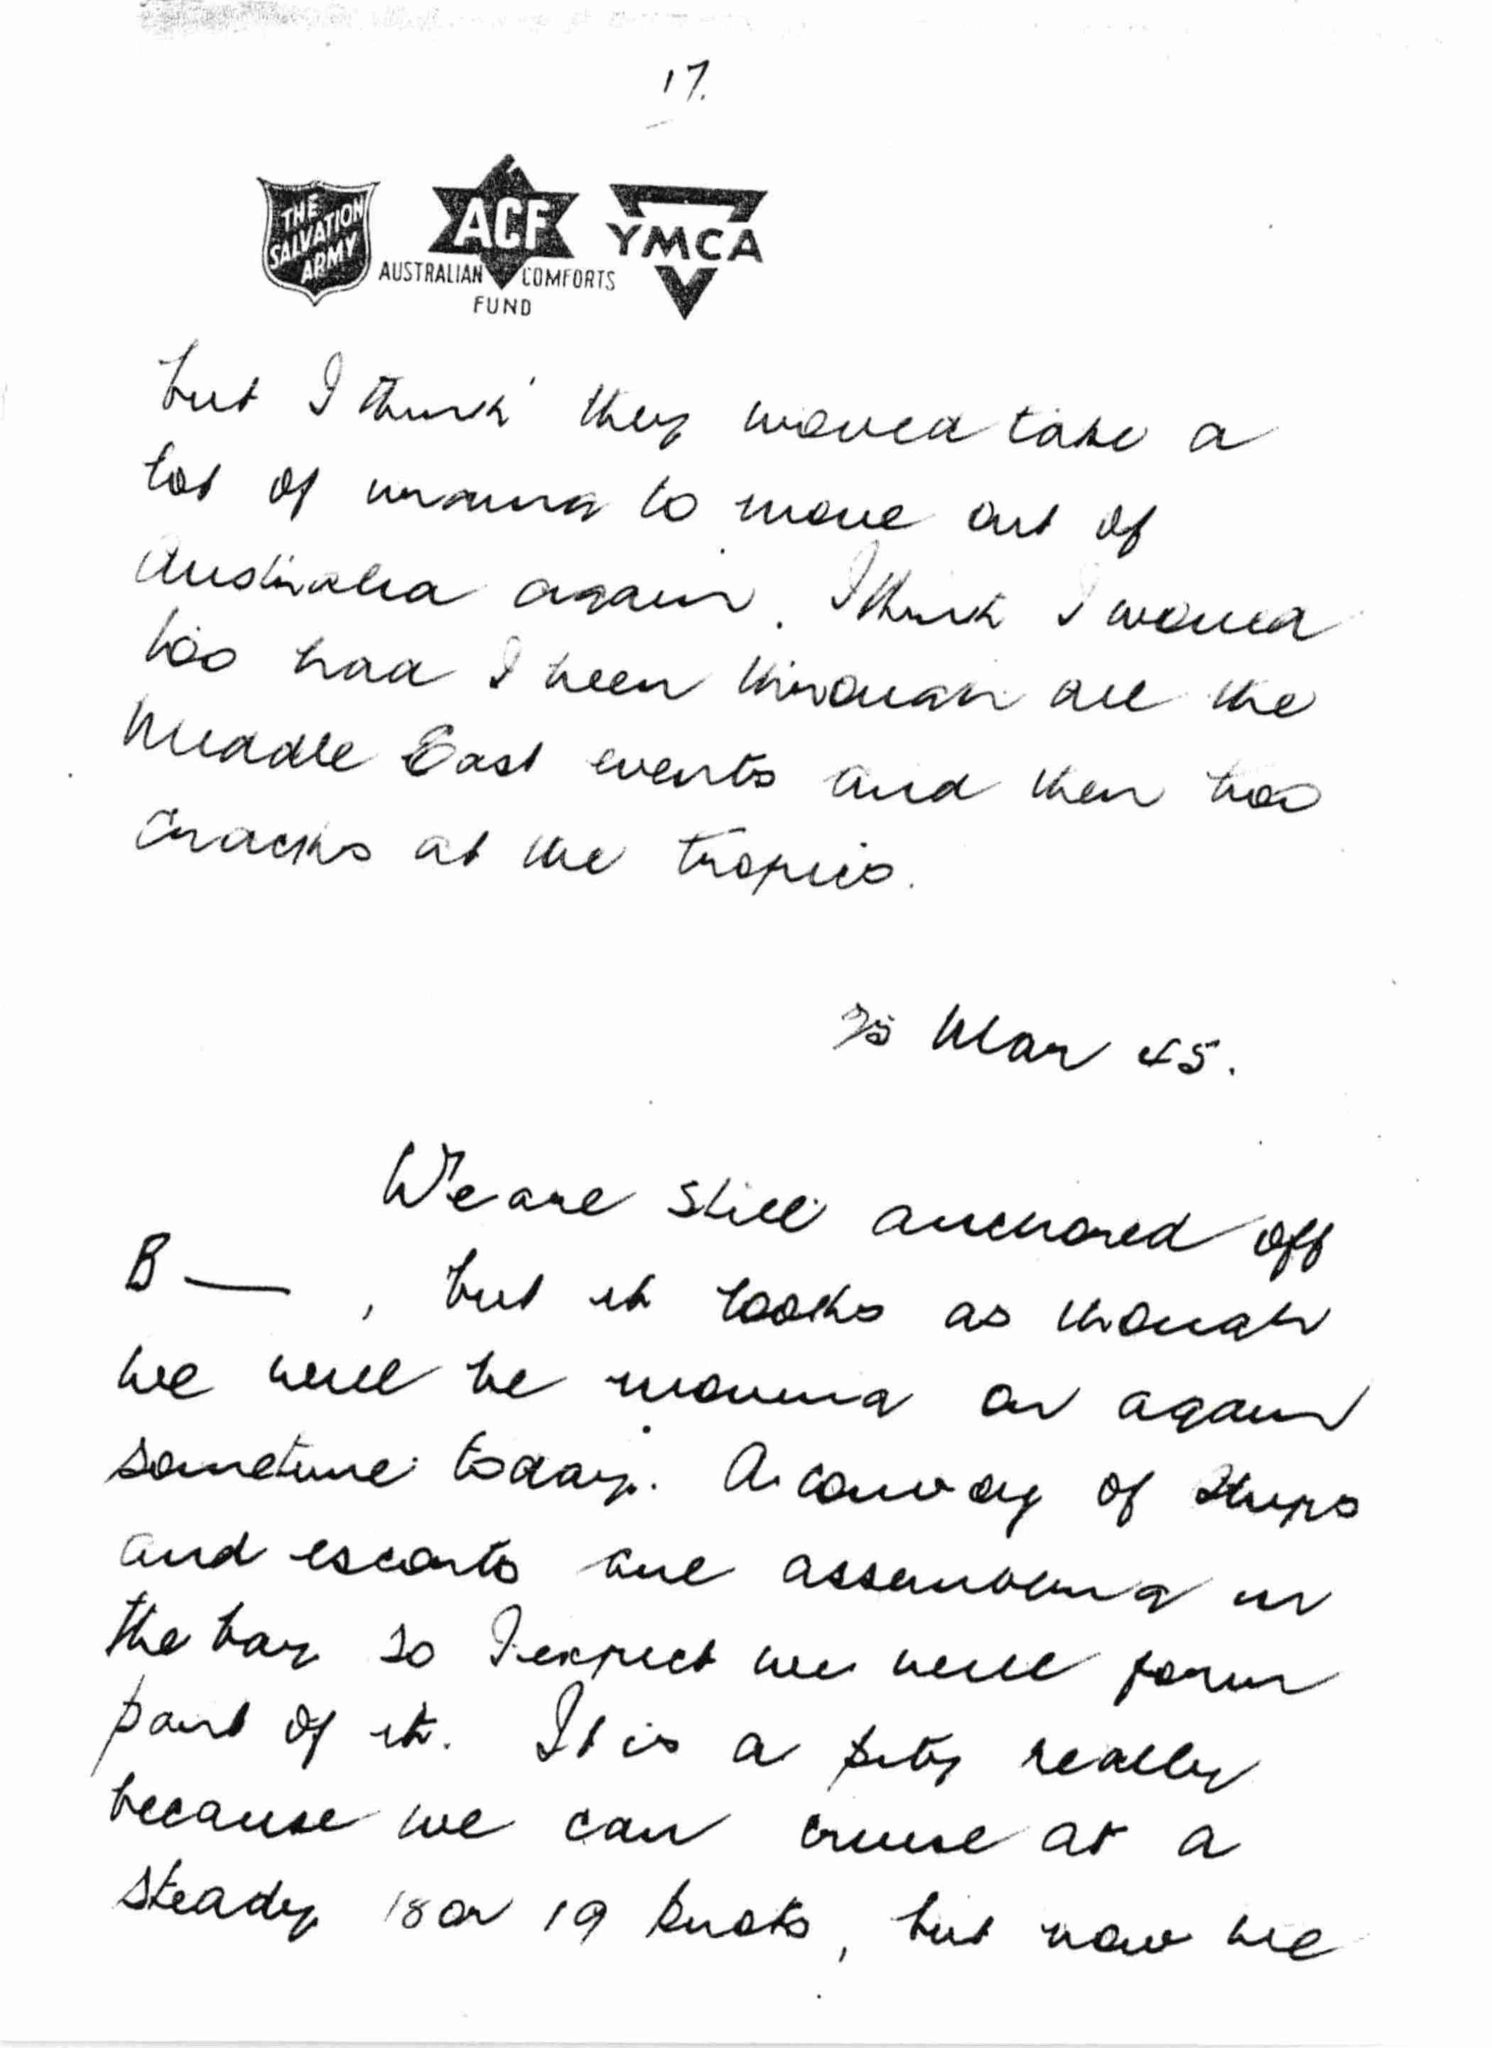 17.
THE SALVATION ARMY
ACF
AUSTRALIAN COMFORTS FUND
YMCA
but I think they would take a
lot of urging to move out of
Australia again. I think I would
too had I been through all the
Middle East events and then two
cracks at the tropics.
25 Mar 45.
We are still anchored off
B —, but it looks as though
we will be moving on again
sometime today. A convoy of ships
and escorts are assembling in
the bay so I expect we will form
part of it. It is a pity really
because we can cruise at a
steady 18 or 19 knots, but now we